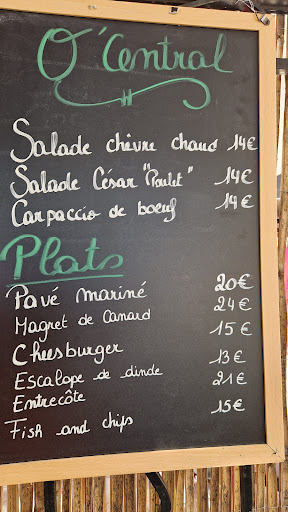 O'Central
Salade chèvre chaud 14€
Salade César "Poulet" 14€
Carpaccio de boeuf 14€
Plats
Pavé mariné 20€
Magret de Canard 24€
Cheesburger 15€
Escalope de dinde 13€
Entrecôte 21€
Fish and chips 15€